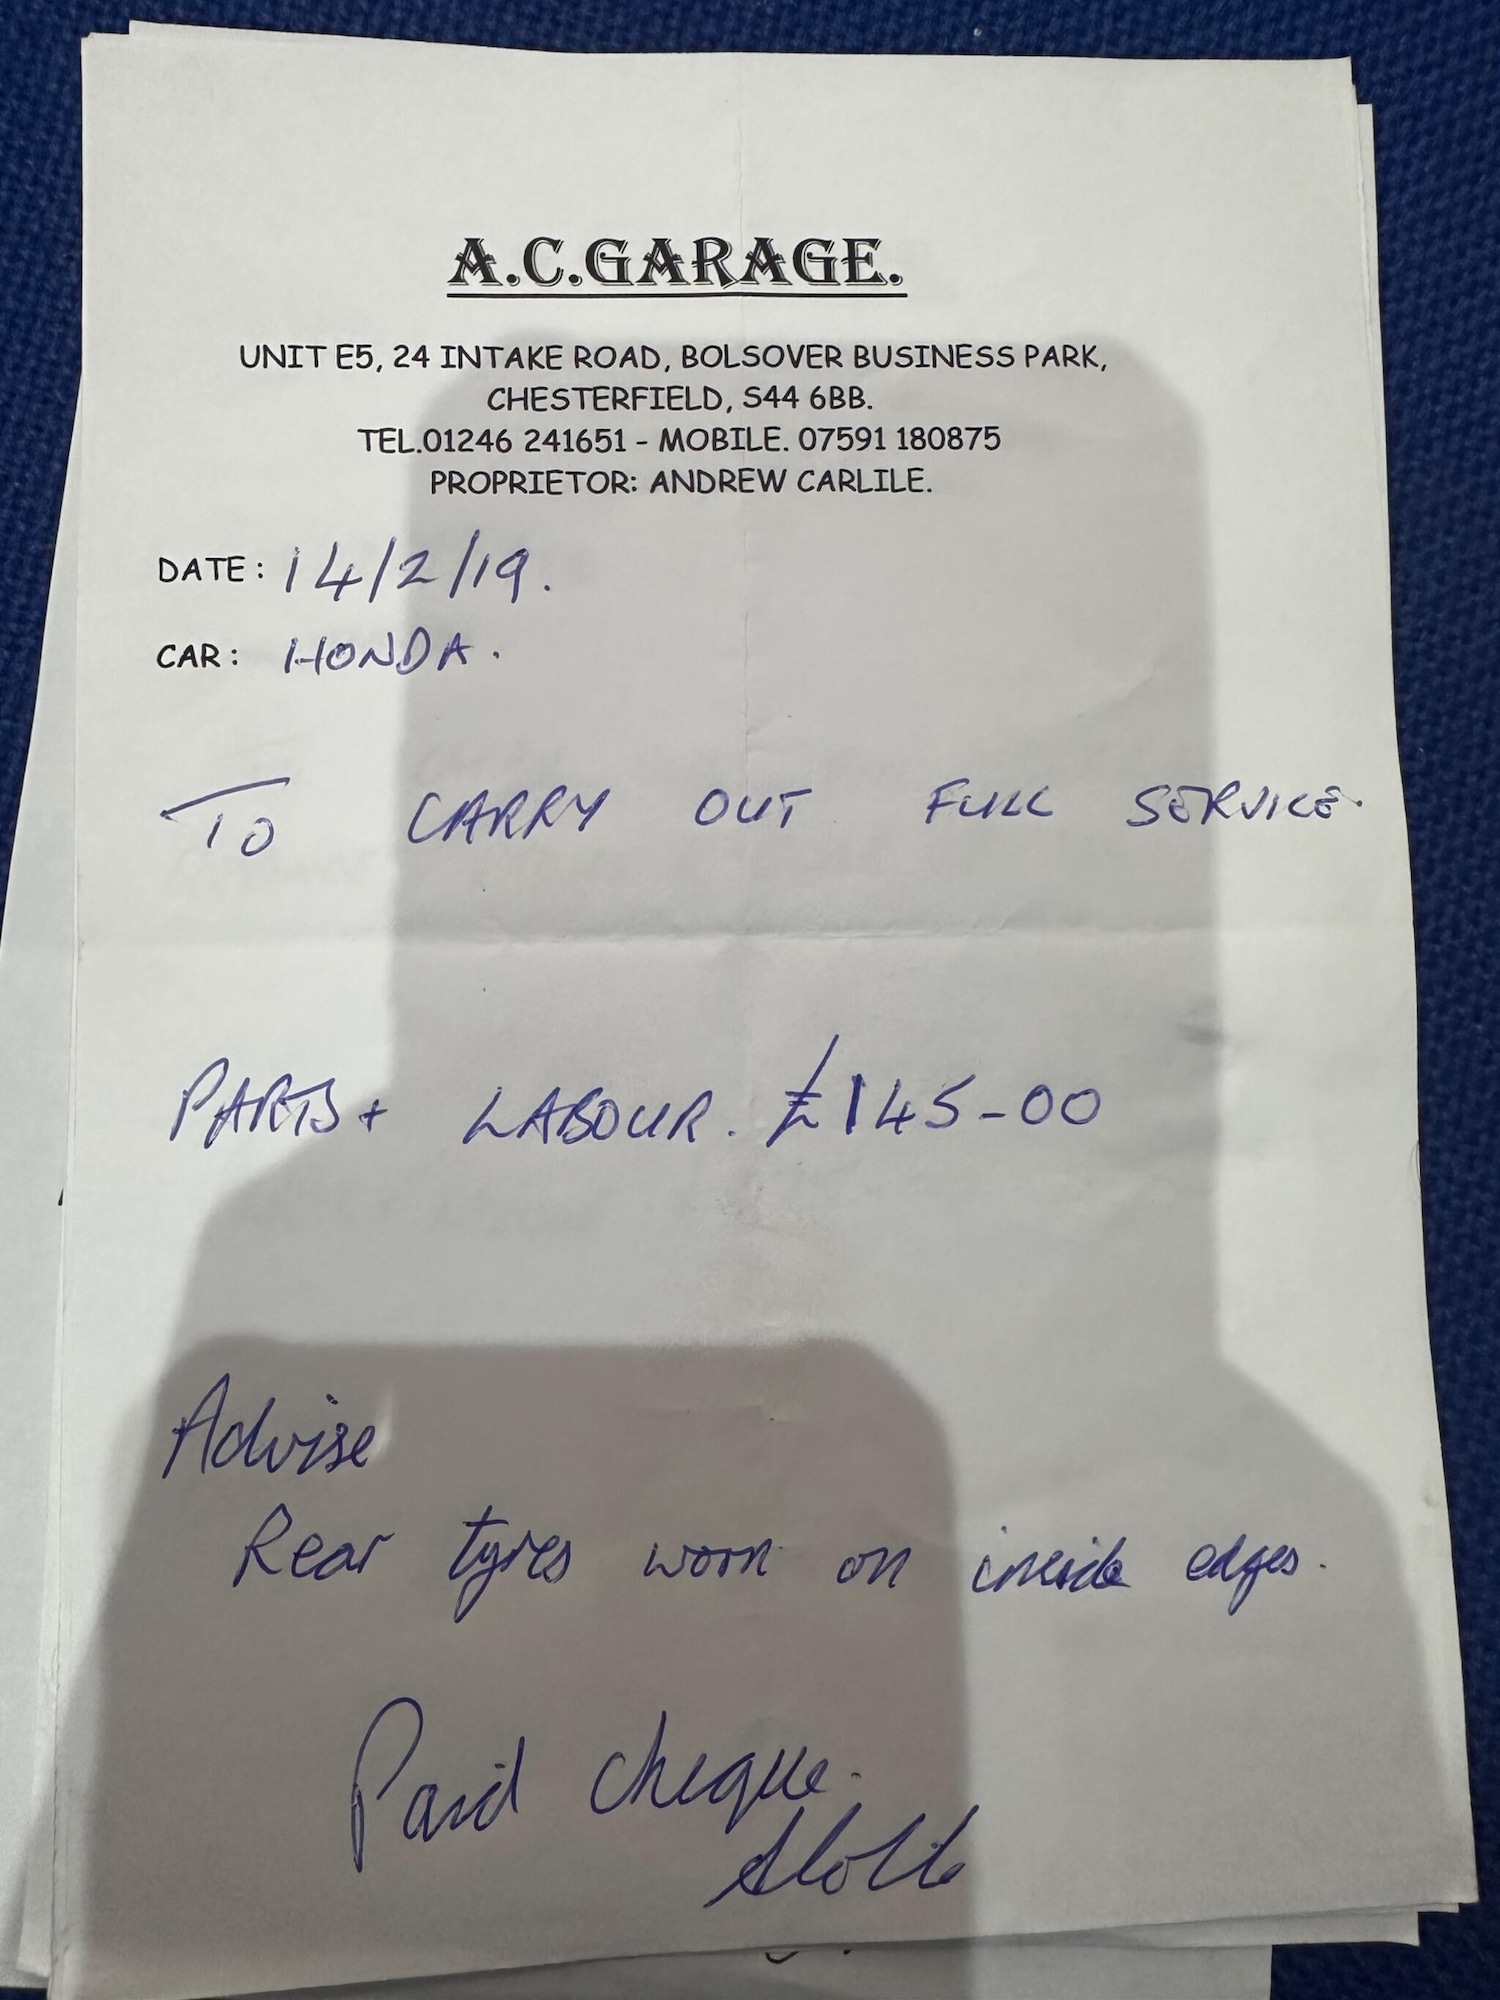 A.C.GARAGE.
UNIT E5, 24 INTAKE ROAD, BOLSOVER BUSINESS PARK,
CHESTERFIELD, S44 6BB.
TEL.01246 241651 - MOBILE. 07591 180875
PROPRIETOR: ANDREW CARLILE.
DATE: 14/2/19.
CAR: HONDA.
TO CARRY OUT FULL SERVICE.
PARTS + LABOUR. £145-00
Advise
Rear tyres worn on inside edges.
Paid cheque.